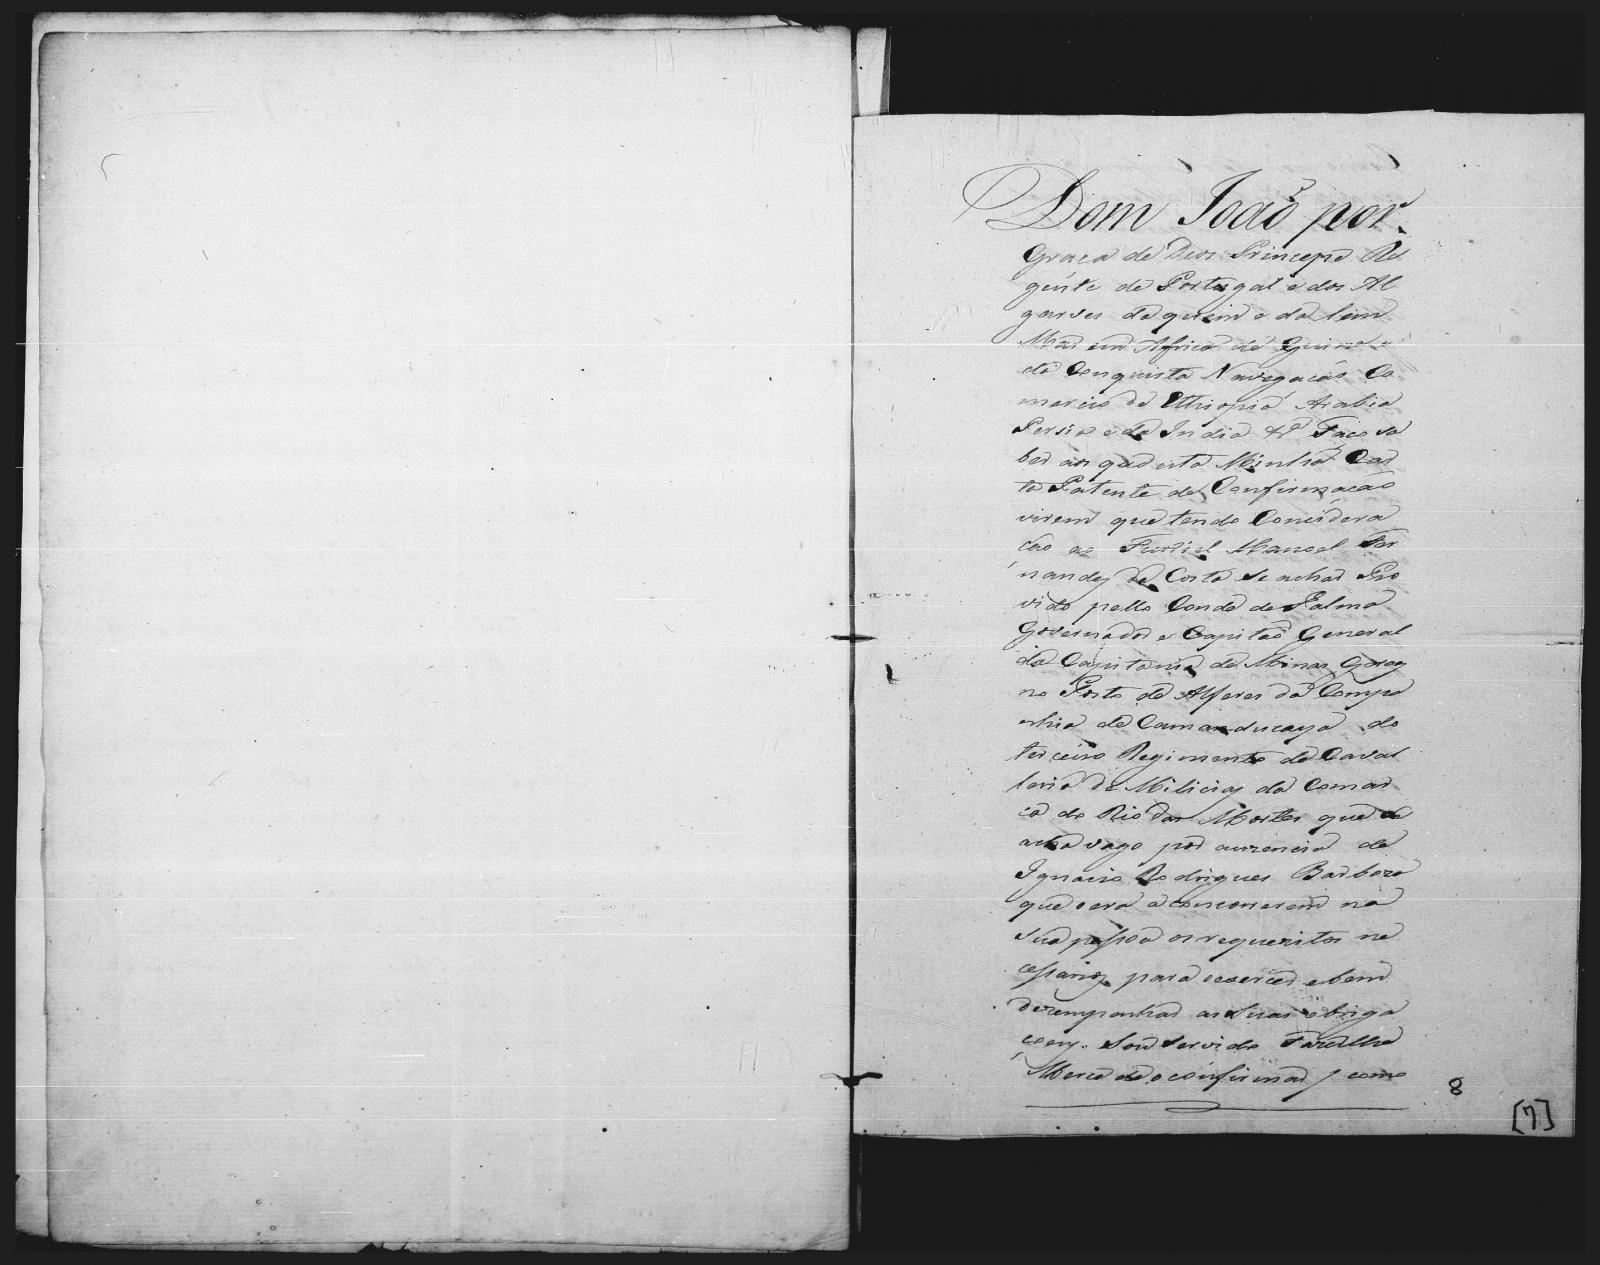 Dom João por
Graça de Deos Principe Re
gente de Portugal e dos Al
garves da quem e da lem
Mar em Africa de Guiné e
da Conquista Navegação Co
mercio da Ethiopia Arabia
Persia e da India &ª Faço sa
ber aos que esta Minha Car
ta Patente de Confirmação
virem que tendo Considera
ção ao Furriel Manoel Fer
nandes da Costa se achar Pro
vido pello Conde de Palma
Governador e Capitão General
da Capitania de Minas Geraes
no Posto de Alferes da Compa
nhia de Camanducaya do
terceiro Regimento de Caval
laria de Milicias da Comar
ca do Rio das Mortes que se
acha vago por auzencia de
Ignacio Rodrigues Barboza
que era e concorrerem na
sua pessoa os requezitos ne
cessarios para exercer e bem
dezempenhar as suas obriga
çoens. Sou servido Fazerlhe
Merce de o confirmar / como
8
[7]